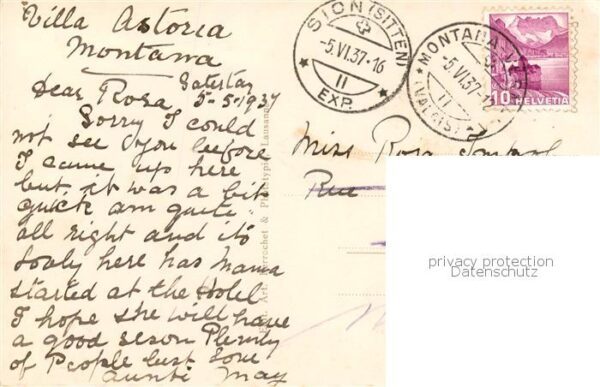 Villa Astoria
Montana
Saterday
5-5-1937
Dear Rosa
Sorry I could
not see you beefore
I came up here
but it was a bit
quick am quite
all right and its
lovly here has Mama
started at the Hotel
I hope she will have
a good seson Plenty
of People best love
Aunti May
SION (SITTEN)
-5.VI.37-16
II
EXP.
MONTANA
-5.VI.37-
II
(VALAIS)
10 HELVETIA
Miss Rosa
Rue
Perrochet & Phototypie, Lausanne
privacy protection
Datenschutz